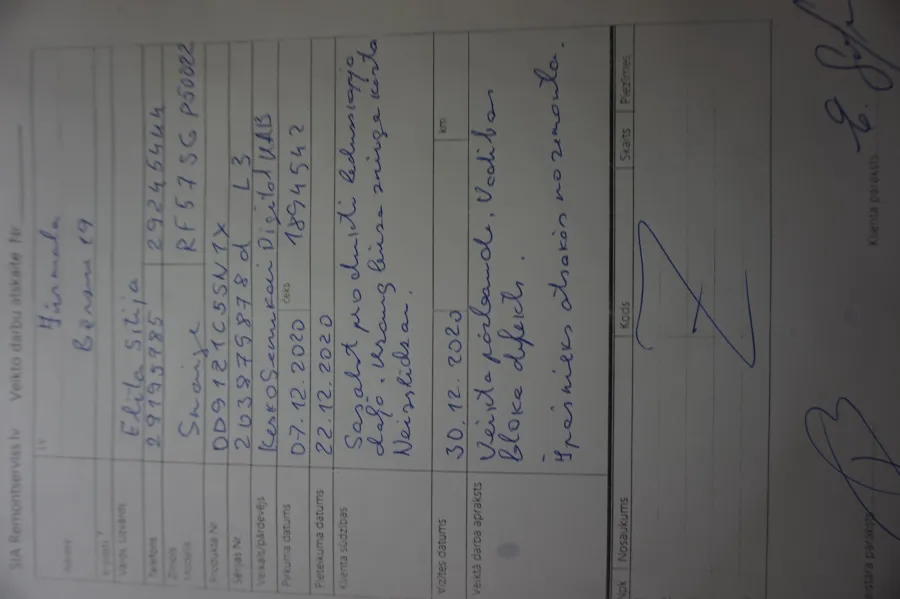 SIA Remontserviss.lv Veikto darbu atskaite Nr.
Jūrmala
Bērzu 19
Vārds, Uzvārds Elita Siliņa
Telefons 29199985 29245444
Zīmols Modelis Snaige RF57SG P50022
Produkta Nr. DD9121C5SN1X
Sērijas Nr. 203875878d L3
Veikals/pārdevējs KeskoSenukai Digital UAB
Pirkuma datums 07.12.2020 čeks 1894542
Pieteikuma datums 22.12.2020
Klienta sūdzības Sasalst produkti ledusskapja
daļā.
Neizslēdzas.
Vizītes datums 30.12.2020 km
Veiktā darba apraksts Veikta pārbaude. Vadības
Bloka defekts.
Īpašnieks atsakās no remonta.
Npk Nosaukums Kods Skaits Piezīmes
Meistara paraksts Klienta paraksts